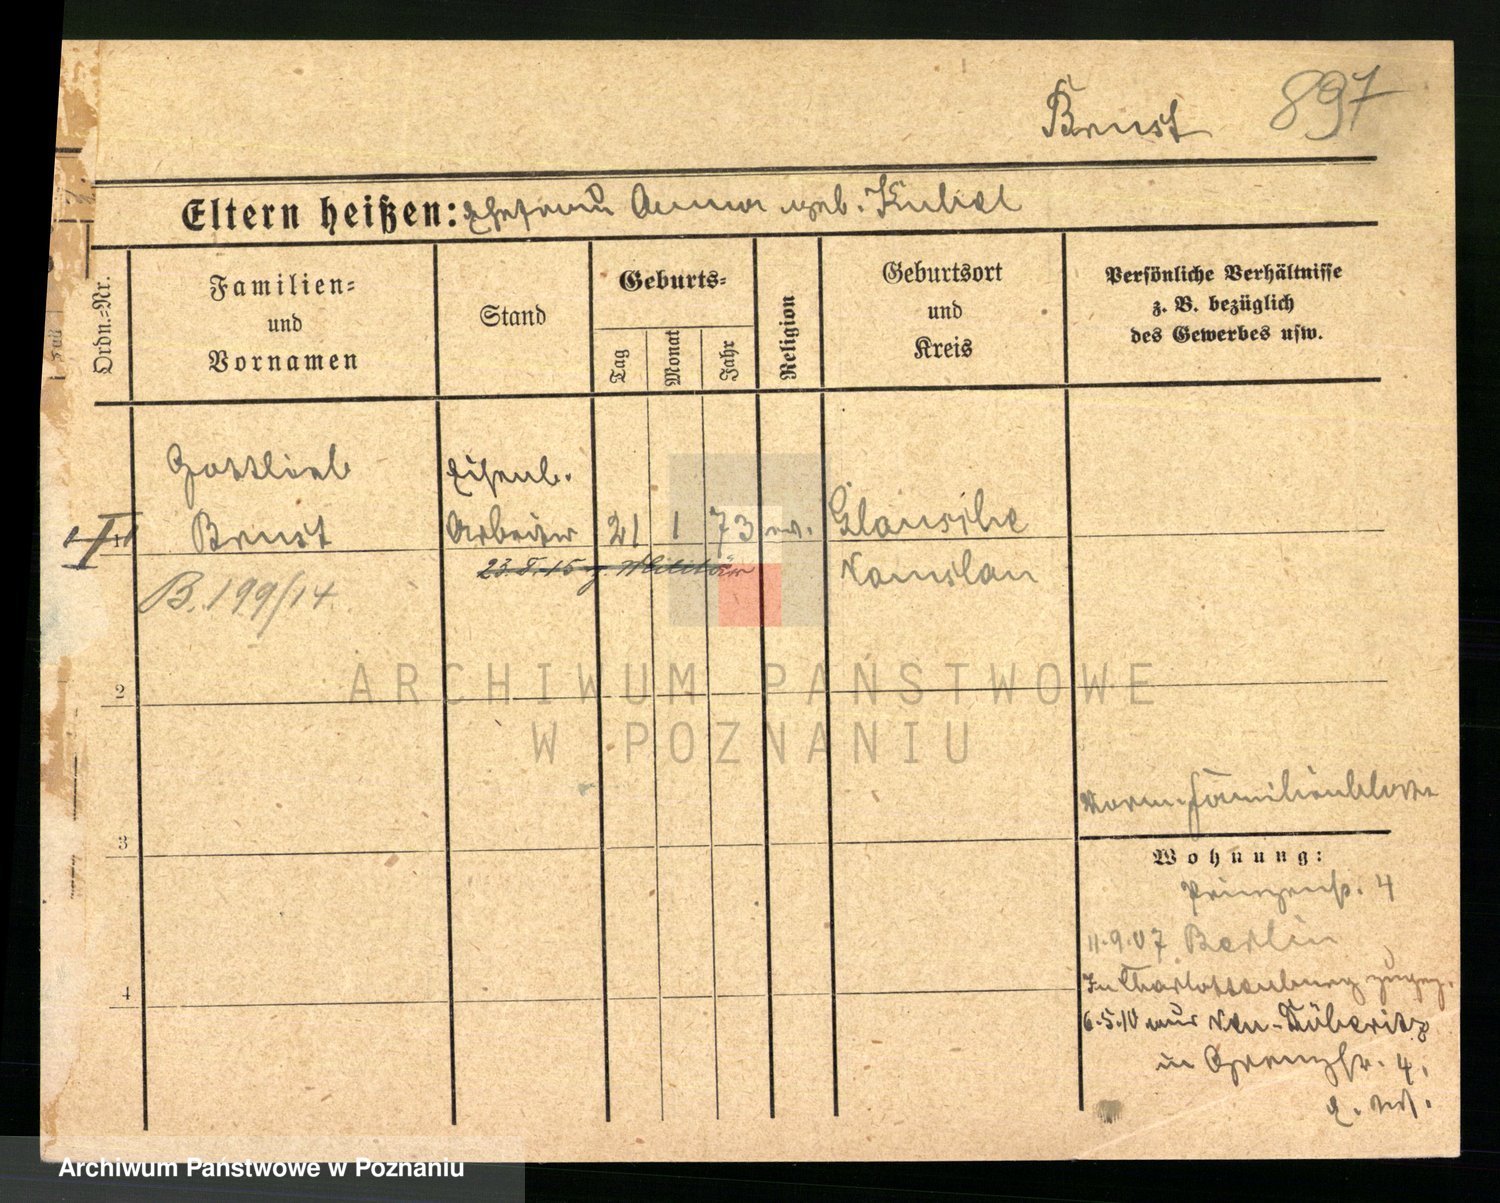 Brust 897
Eltern heißen: Ehefrau Anna geb. Kubal
Ordn.-Nr.
Familien-
und
Vornamen
Stand
Geburts-
Tag
Monat
Jahr
Religion
Geburtsort
und
Kreis
Persönliche Verhältnisse
z. B. bezüglich
des Gewerbes usw.
Gottlieb
Brust
B. 199/14
Eisenb.
Arbeiter
23.5.15 z. Militär
21 1 73 ev.
Glausche
Namslau
1
2
3
4
Familienblatt
Wohnung:
Prinzenstr. 4
11.9.07 Berlin
In Charlottenburg zugez.
6.5.10 aus Neu-Döberitz
in 4.
ARCHIWUM PAŃSTWOWE
W POZNANIU
Archiwum Państwowe w Poznaniu